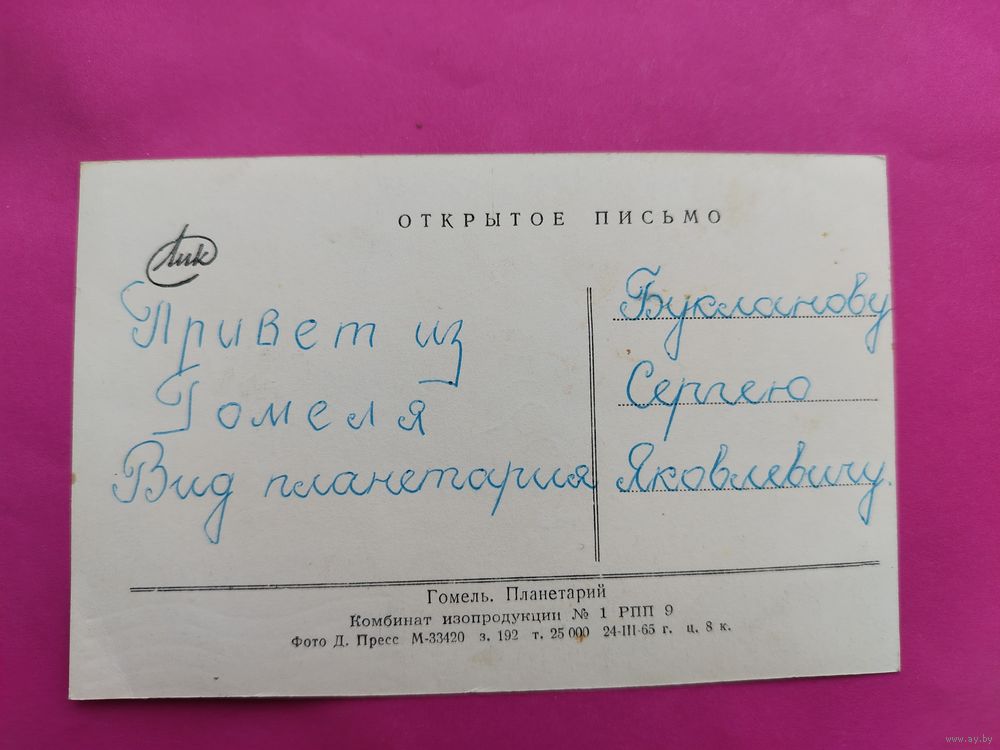 ОТКРЫТОЕ ПИСЬМО
Лик
Привет из
Гомеля
Вид планетария
Букланову
Сергею
Яковлевичу.
Гомель. Планетарий
Комбинат изопродукции № 1 РПП 9
Фото Д. Пресс М-33420 з. 192 т. 25 000 24-III-65 г. ц. 8 к.
www.ay.by